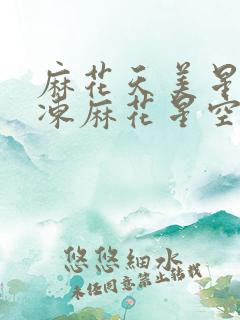 麻花天美星
凍麻花星空
悠悠細水
未经同意禁止转载